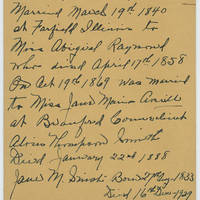 Married March 19th 1840
at Fairfield Illinois to
Miss Abigail Raymond
who died April 17th 1858
On Oct 19th 1869 was married
to Miss Jane Maria
at Branford Connecticut
Alvin Thompson Smith
Died January 22nd 1888
Jane M. Smith Born 27th Aug 1833
Died 16th Dec 1929